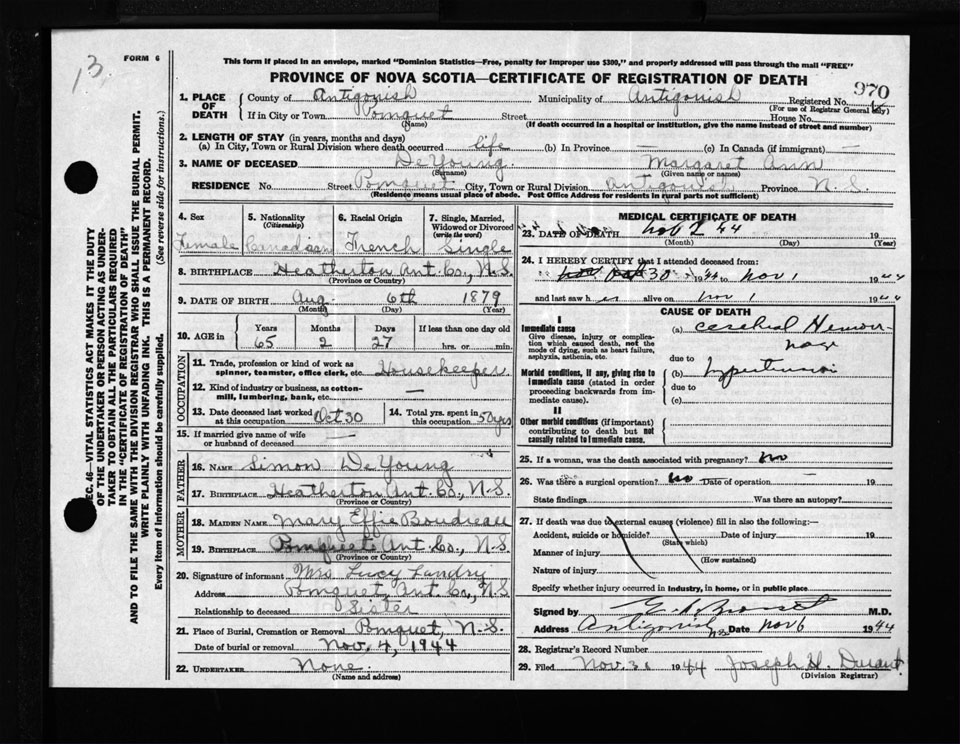 13
FORM 6
This form if placed in an envelope, marked "Dominion Statistics—Free, penalty for improper use $300," and properly addressed will pass through the mail "FREE"
PROVINCE OF NOVA SCOTIA—CERTIFICATE OF REGISTRATION OF DEATH
970
1. PLACE OF DEATH
County of Antigonish Municipality of Antigonish Registered No.
(For use of Registrar General only)
If in City or Town Pomquet Street House No.
(Name) (If death occurred in a hospital or institution, give the name instead of street and number)
2. LENGTH OF STAY (in years, months and days)
(a) In City, Town or Rural Division where death occurred life (b) In Province — (c) In Canada (if immigrant) —
3. NAME OF DECEASED De Young. Margaret Ann
(Surname) (Given name or names)
RESIDENCE No. Street Pomquet City, Town or Rural Division Antigonish Province N.S.
(Residence means usual place of abode. Post Office Address for residents in rural parts not sufficient)
4. Sex
Female
5. Nationality
(Citizenship)
Canadian
6. Racial Origin
French
7. Single, Married, Widowed or Divorced
(write the word)
Single
8. BIRTHPLACE Heatherton Ant. Co., N.S.
(Province or Country)
9. DATE OF BIRTH Aug. 6th 1879
(Month) (Day) (Year)
10. AGE in
Years Months Days If less than one day old
65 2 27 hrs. or min.
OCCUPATION
11. Trade, profession or kind of work as spinner, teamster, office clerk, etc. Housekeeper.
12. Kind of industry or business, as cotton-mill, lumbering, bank, etc. —
13. Date deceased last worked at this occupation Oct 30
14. Total yrs. spent in this occupation 50 yrs
15. If married give name of wife or husband of deceased —
FATHER
16. NAME Simon De Young
17. BIRTHPLACE Heatherton Ant. Co., N.S.
(Province or Country)
MOTHER
18. MAIDEN NAME Mary Effie Boudreau
19. BIRTHPLACE Pomquet Ant. Co., N.S.
(Province or Country)
20. Signature of informant Mrs Lucy Landry
Address Pomquet Ant. Co., N.S
Relationship to deceased Sister
21. Place of Burial, Cremation or Removal Pomquet, N.S.
Date of burial or removal Nov. 4, 1944
22. UNDERTAKER None.
(Name and address)
MEDICAL CERTIFICATE OF DEATH
23. DATE OF DEATH Nov 2 44 19
(Month) (Day) (Year)
24. I HEREBY CERTIFY that I attended deceased from:
Oct 30 1944 to Nov 1 1944
and last saw her alive on Nov 1 1944
CAUSE OF DEATH
I
Immediate cause
Give disease, injury or complication which caused death, not the mode of dying, such as heart failure, asphyxia, asthenia, etc.
(a) Cerebral Hemorrhage
due to
Morbid conditions, if any, giving rise to immediate cause (stated in order proceeding backwards from immediate cause).
(b) Hypertension
due to
(c)
II
Other morbid conditions (if important) contributing to death but not causally related to immediate cause.
25. If a woman, was the death associated with pregnancy? No
26. Was there a surgical operation? No Date of operation 19
State findings Was there an autopsy?
27. If death was due to external causes (violence) fill in also the following:—
Accident, suicide or homicide? Date of injury 19
(State which)
Manner of injury
(How sustained)
Nature of injury
Specify whether injury occurred in industry, in home, or in public place
Signed by M.D.
Address Antigonish N.S. Date Nov 6 1944
28. Registrar's Record Number
29. Filed Nov. 31 1944 Joseph H. Durant.
(Division Registrar)
SEC. 46—VITAL STATISTICS ACT MAKES IT THE DUTY
OF THE UNDERTAKER OR PERSON ACTING AS UNDER-
TAKER TO OBTAIN ALL THE PARTICULARS REQUIRED
IN THE "CERTIFICATE OF REGISTRATION OF DEATH"
AND TO FILE THE SAME WITH THE DIVISION REGISTRAR WHO SHALL ISSUE THE BURIAL PERMIT.
WRITE PLAINLY WITH UNFADING INK. THIS IS A PERMANENT RECORD.
Every item of information should be carefully supplied. (See reverse side for instructions.)